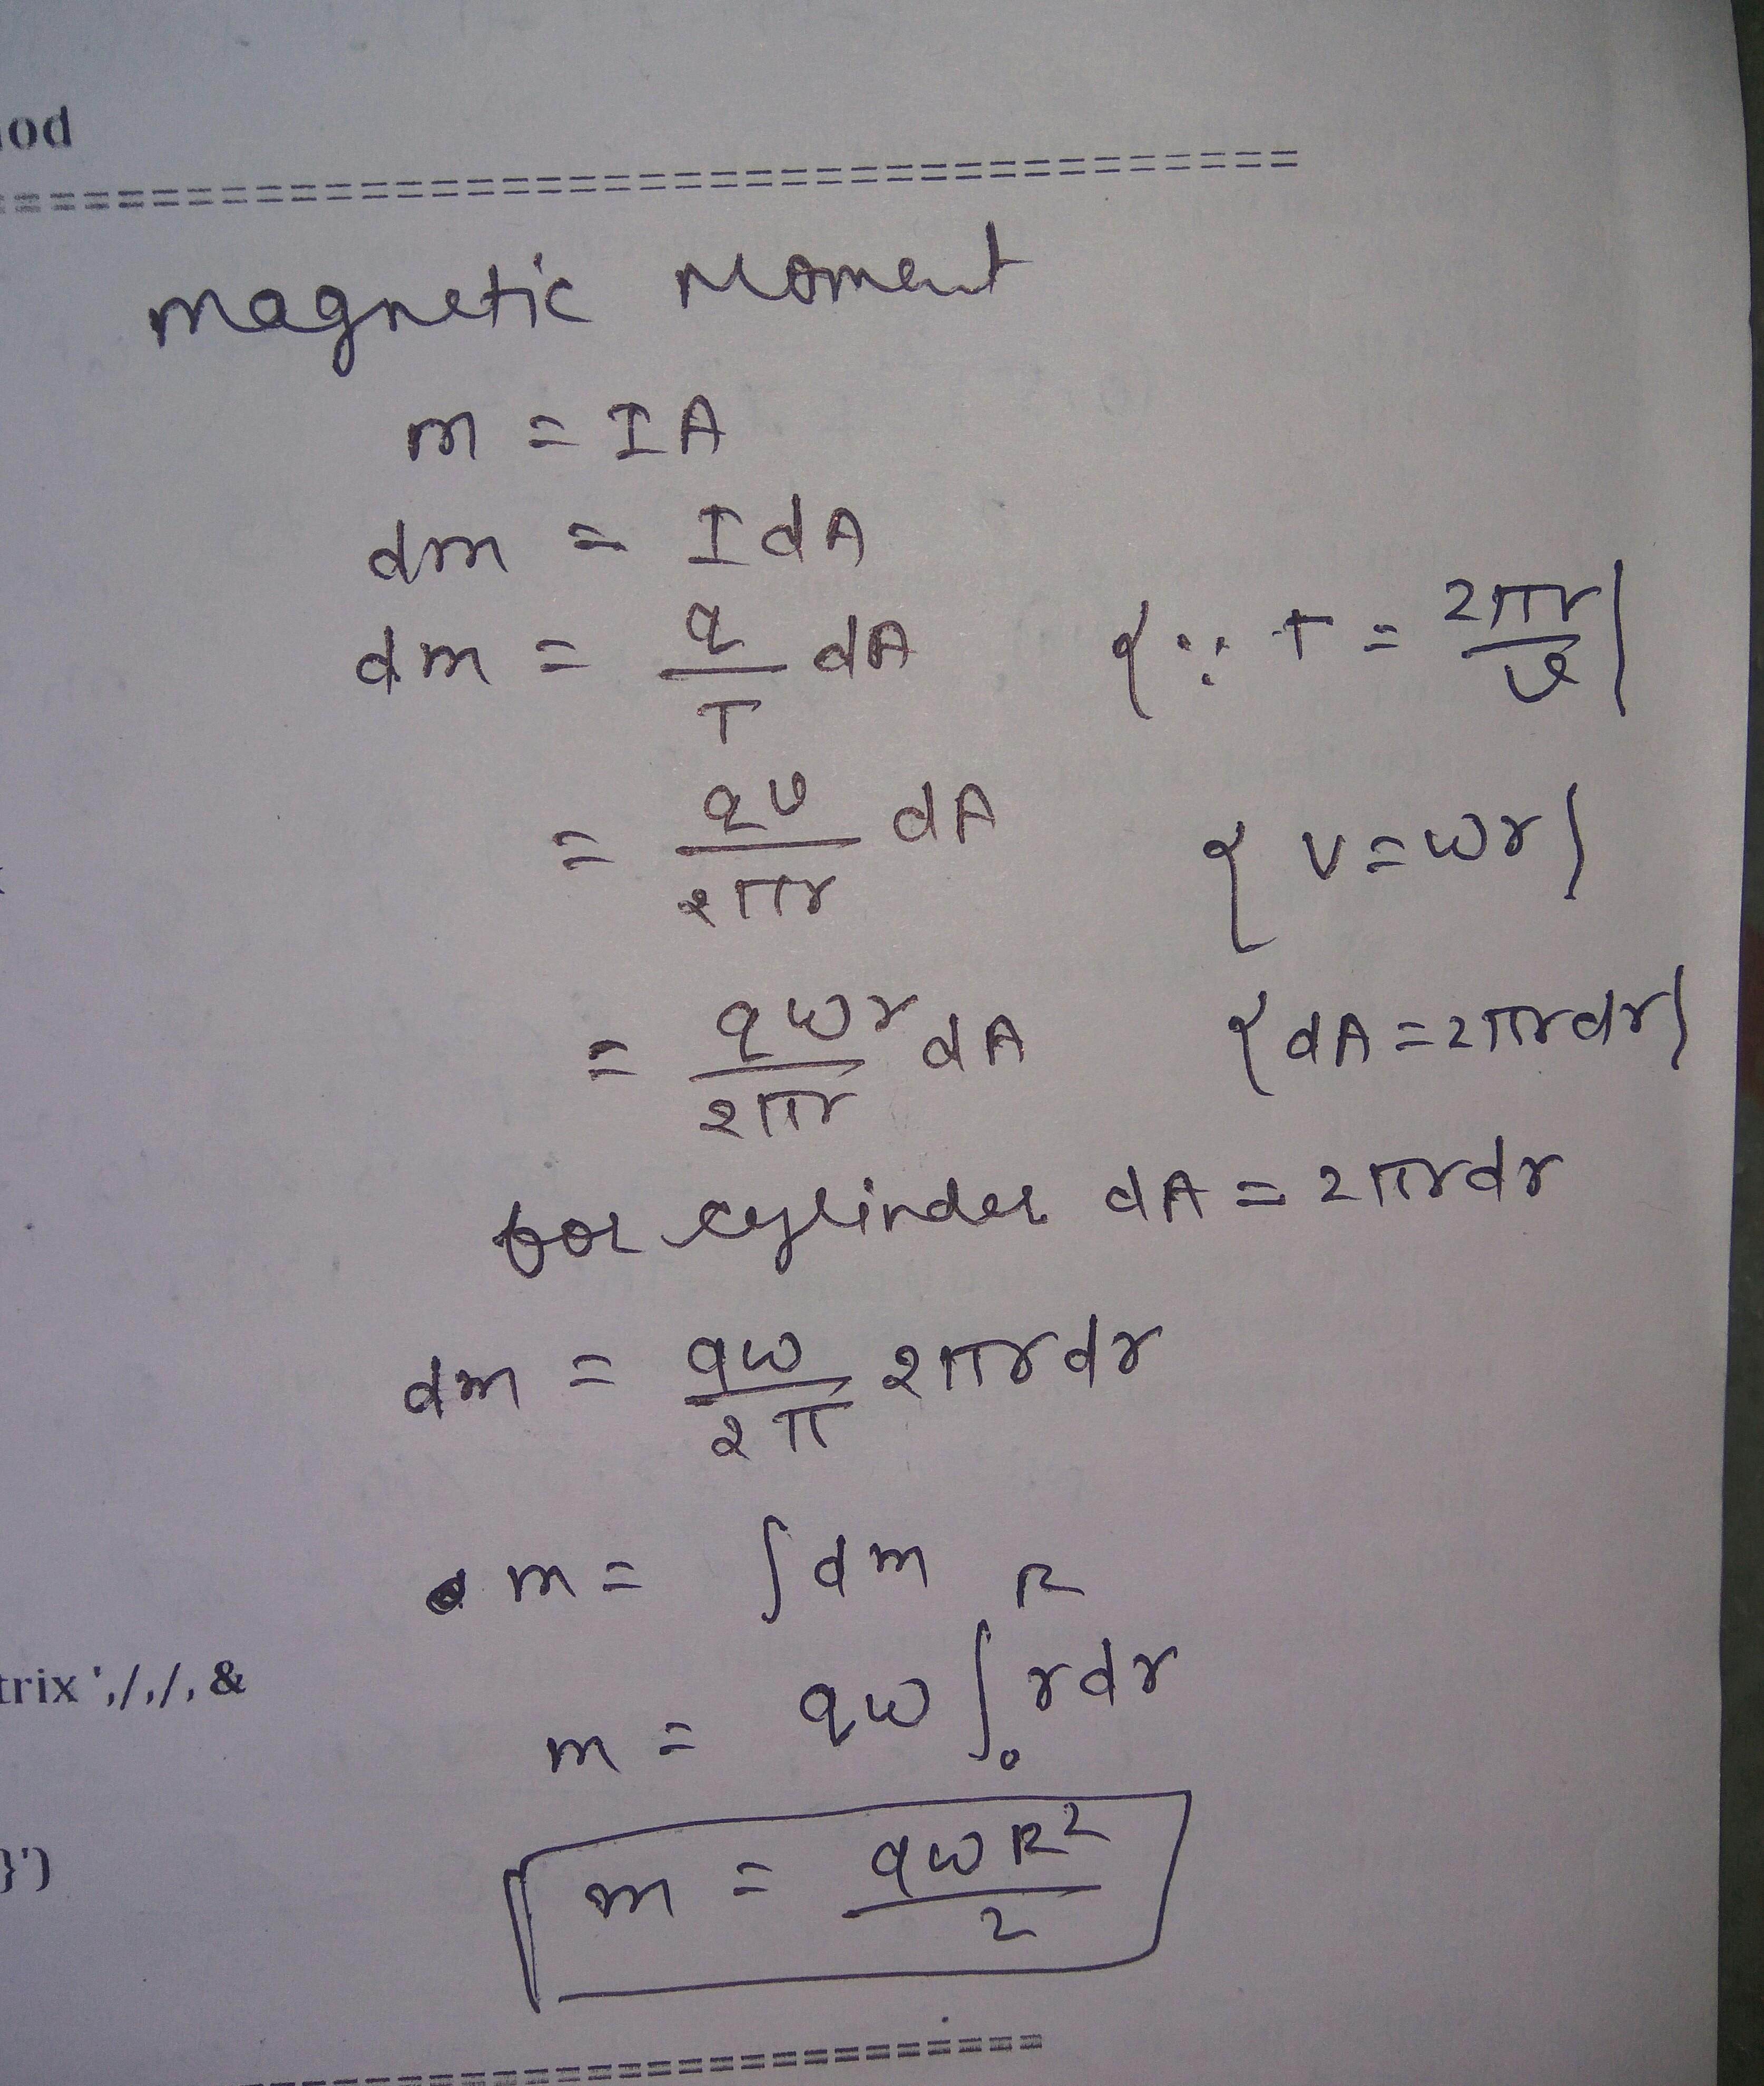 od
==============================
magnetic Moment
m = IA
dm = IdA
dm = q/T dA {∵ T = 2πr/v}
= qv/2πr dA {v=ωr}
= qωr/2πr dA {dA=2πrdr}
for cylinder dA = 2πrdr
dm = qω/2π 2πrdr
m = ∫dm
m = qω ∫₀ᴿ rdr
trix ',/,/, &
m = qωR²/2
}')
====================